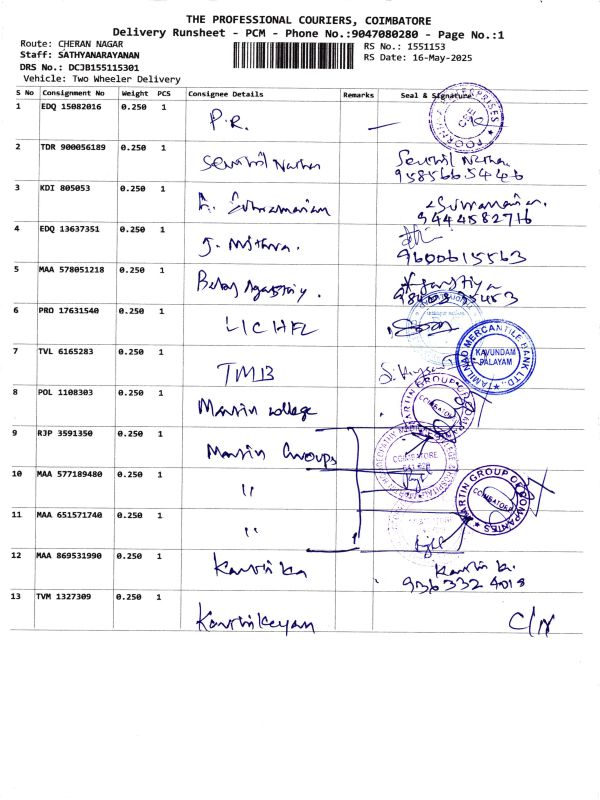 THE PROFESSIONAL COURIERS, COIMBATORE
Delivery Runsheet - PCM - Phone No.:9047080280 - Page No.:1
Route: CHERAN NAGAR
Staff: SATHYANARAYANAN
DRS No.: DCJB155115301
Vehicle: Two Wheeler Delivery
RS No.: 1551153
RS Date: 16-May-2025
S No Consignment No Weight PCS Consignee Details Remarks Seal & Signature
1 EDQ 15082016 0.250 1 P.R. —
2 TDR 900056189 0.250 1 Senthil Nathan Senthil Nathan
9585665446
3 KDI 805053 0.250 1 A. Subramanian Subramanian.
9444582716
4 EDQ 13637351 0.250 1 J. Mithra.
9600615563
5 MAA 578051218 0.250 1
6 PRO 17631540 0.250 1 LIC HFL
7 TVL 6165283 0.250 1 TMB
TAMILNAD MERCANTILE BANK LTD.
KAVUNDAM
PALAYAM
8 POL 1108303 0.250 1 Martin college
MARTIN GROUP OF
COIMBATORE
9 RJP 3591350 0.250 1 Martin Groups
COIMBATORE
10 MAA 577189480 0.250 1 "
MARTIN GROUP OF COMPANIES
COIMBATORE
11 MAA 651571740 0.250 1 "
12 MAA 869531990 0.250 1 Karthika Karthika.
9363324018
13 TVM 1327309 0.250 1 Karthikeyan C/N